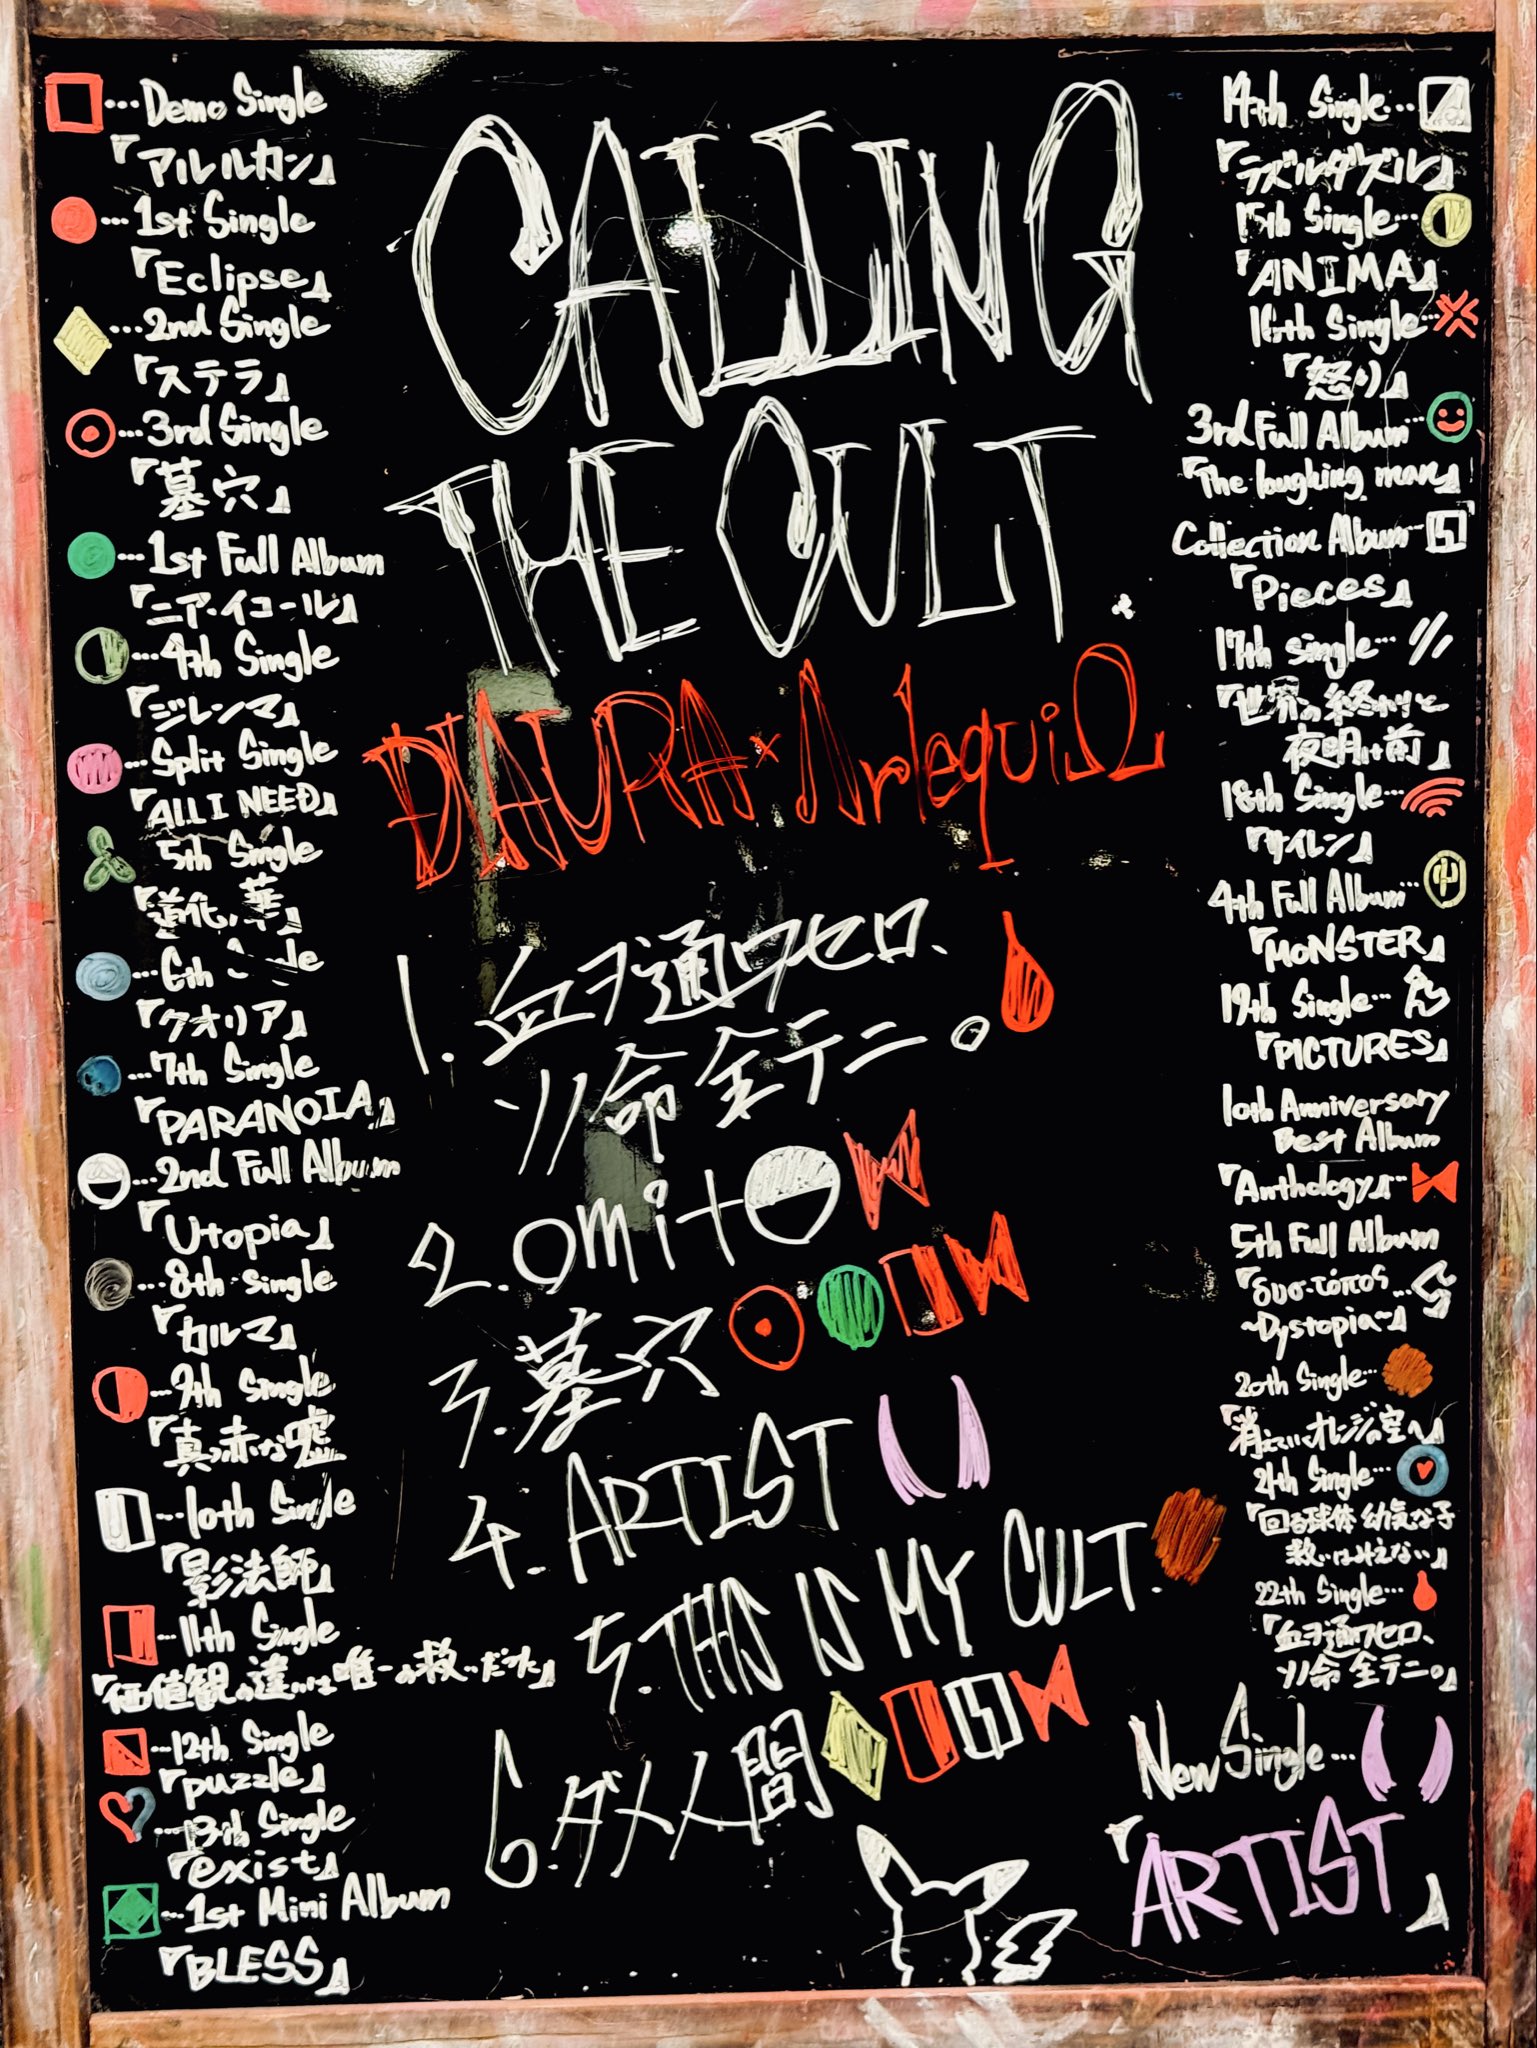 …Demo Single
『アルルカン』
…1st Single
『Eclipse』
…2nd Single
『ステラ』
…3rd Single
『墓穴』
…1st Full Album
『ニア・イコール』
…4th Single
『ジレンマ』
…Split Single
『ALL I NEED』
5th Single
『道化ノ華』
…6th
『クオリア』
…7th Single
『PARANOIA』
…2nd Full Album
『Utopia』
…8th Single
『カルマ』
…9th Single
『真っ赤な嘘』
…10th Single
『影法師』
…11th Single
『価値観の違いは唯一の救いだった』
…12th Single
『puzzle』
…13th Single
『exist』
…1st Mini Album
『BLESS』
CALLING
THE CULT.
DIAURA×ArlequiΩ
1.血ヲ通ワセロ、
ソノ命 全テニ。
2.omit
3.墓穴
4.ARTIST
5.THIS IS MY CULT.
6.ダメ人間
14th Single…
『ラズルダズル』
15th Single…
『ANIMA』
16th Single…
『怒り』
3rd Full Album…
『The laughing man』
Collection Album…
『Pieces』
17th single…
『世界の終わりと
夜明け前』
18th Single…
『サイレン』
4th Full Album…
『MONSTER』
19th Single…
『PICTURES』
10th Anniversary
Best Album
『Anthology』…
5th Full Album
『δυσ-τόπος…
~Dystopia~』
20th Single…
『消えていくオレンジの空へ』
21th Single…
『回る球体 幼気な子
救いはみえない』
22th Single…
『血ヲ通ワセロ、
ソノ命 全テニ。』
New Single…
『ARTIST』